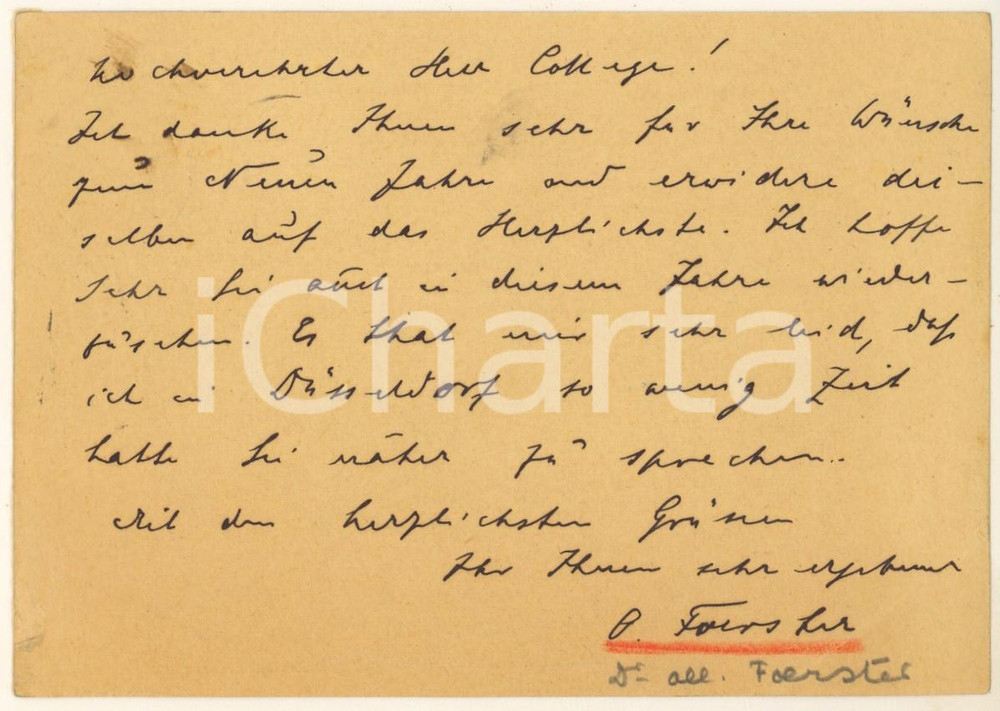 Hochverehrter Herr College!
Ich danke Ihnen sehr für Ihre Wünsche
zum Neuen Jahre und erwidere die-
selben auf das Herzlichste. Ich hoffe
sehr Sie auch in diesem Jahre wieder-
zusehen. Es that mir sehr leid, daß
ich in Düsseldorf so wenig Zeit
hatte Sie näher zu sprechen.
Mit den herzlichsten Grüssen
Ihr Ihnen sehr ergebener
O. Foerster
Dr. all. Foerster
iCharta